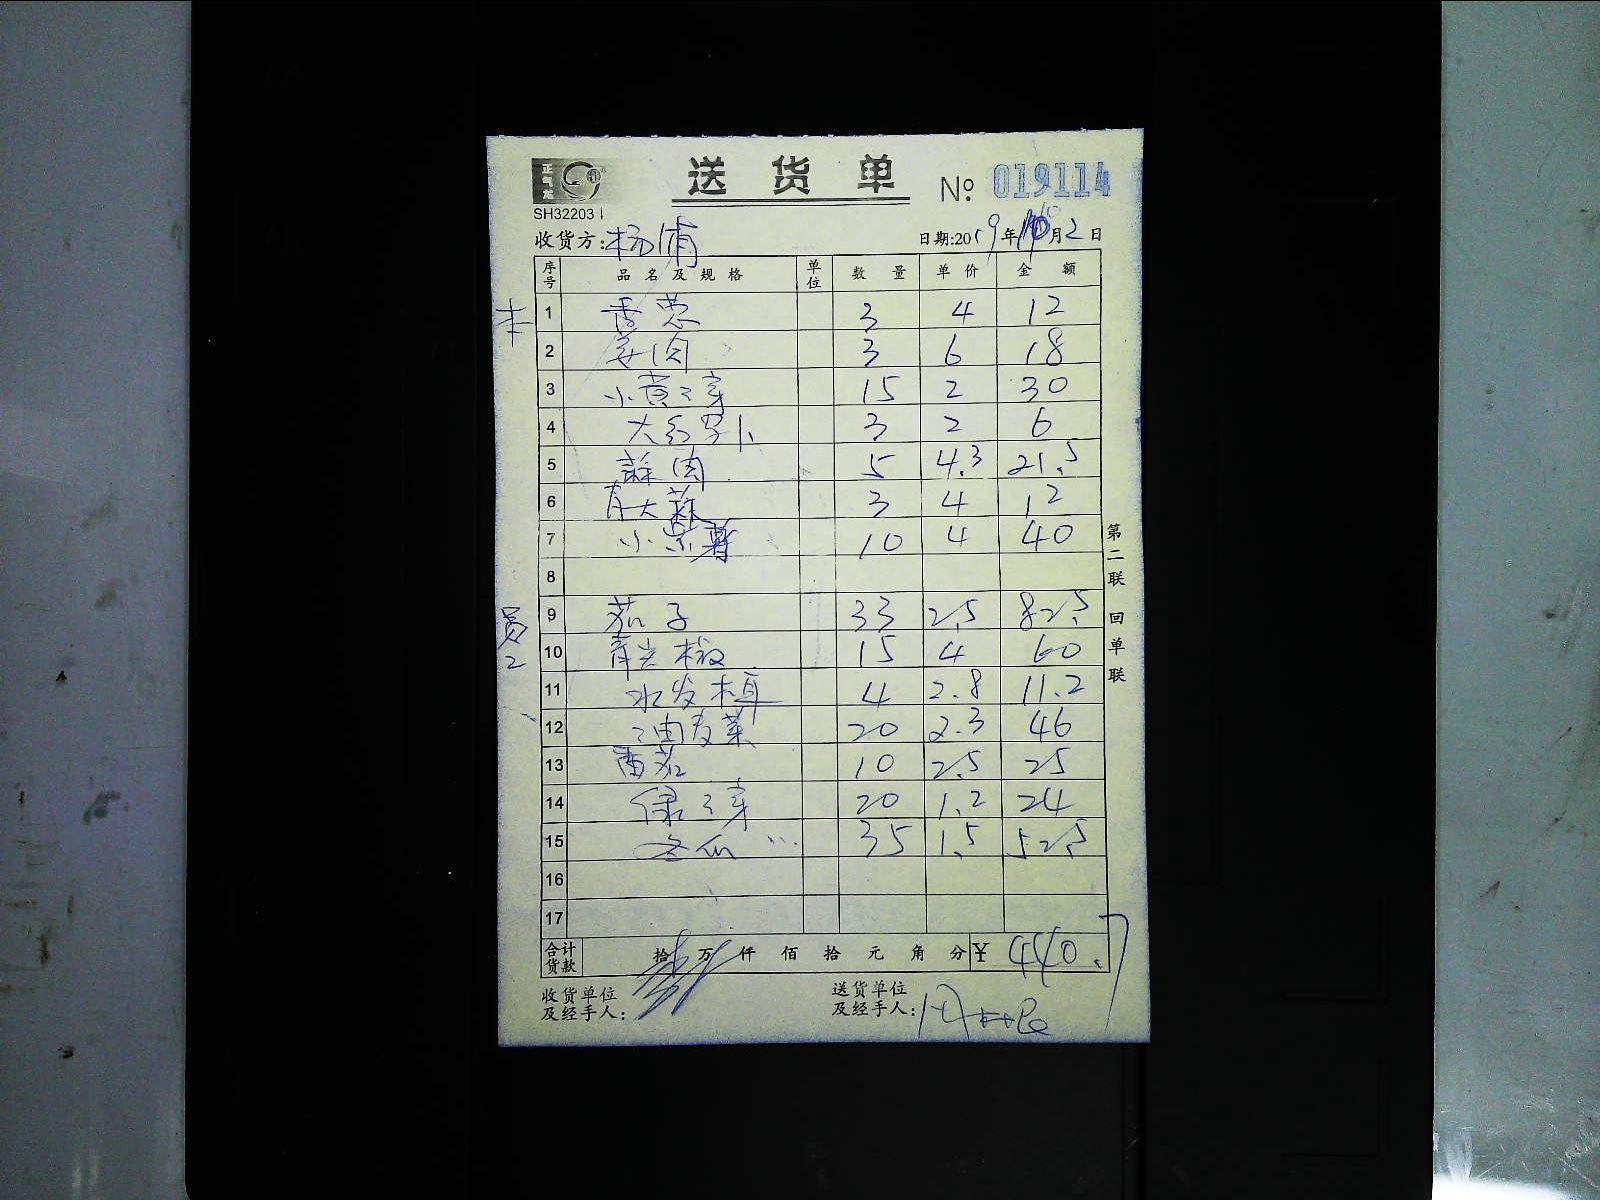 正气龙
送货单
No 019114
SH32203
收货方:杨浦
日期:2019年10月2日
序号 品名及规格 单位 数量 单价 金额
本 1 香葱 3 4 12
2 姜肉 3 6 18
3 小黄芽 15 2 30
4 大红罗卜 3 2 6
5 蒜肉 5 4.3 21.5
6 青大蒜 3 4 12
7 小米 10 4 40
8
员2 9 茄子 33 2.5 82.5
10 青尖椒 15 4 60
11 水发木耳 4 2.8 11.2
12 油麦菜 20 2.3 46
13 西茄 10 2.5 25
14 绿芽 20 1.2 24
15 冬瓜 35 1.5 52.5
16
17
合计货款 拾万仟佰拾元角分 ¥ 440.7
收货单位及经手人:
送货单位及经手人:
第二联 回单联